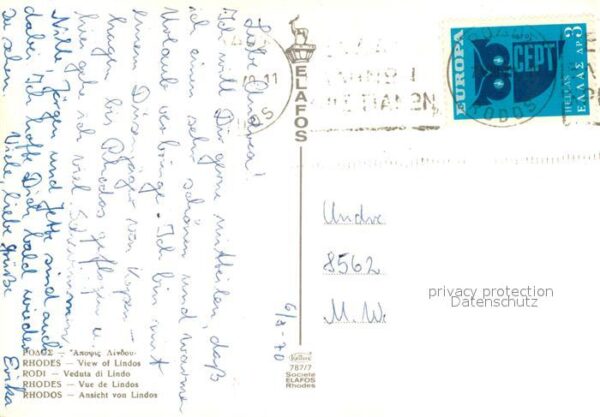 Liebe Undrea!
Ich will Dir gerne mitteilen, daß
ich einen sehr schönen und warmen
Urlaub verbringe. Ich bin mit
einem Düsenjäger von Kopen-
hagen bis Rhodos geflogen u.
hier gehe ich viel schwimmen
Nille, Jörgen und Jette sind auch
dabei. Ich hoffe Dich bald wieder
zu sehen. Viele, liebe Grüße
Erika
ELAFOS
EUROPA
CEPT
HELLAS
ΕΛΛΑΣ ΔΡ 3
Undre
8562
M. W.
privacy protection
Datenschutz
6/8-70
ΡΟΔΟΣ — Ἄποψις Λίνδου
RHODES — View of Lindos
RODI — Veduta di Lindo
RHODES — Vue de Lindos
RHODOS — Ansicht von Lindos
787/7
Société
ELAFOS
Rhodes